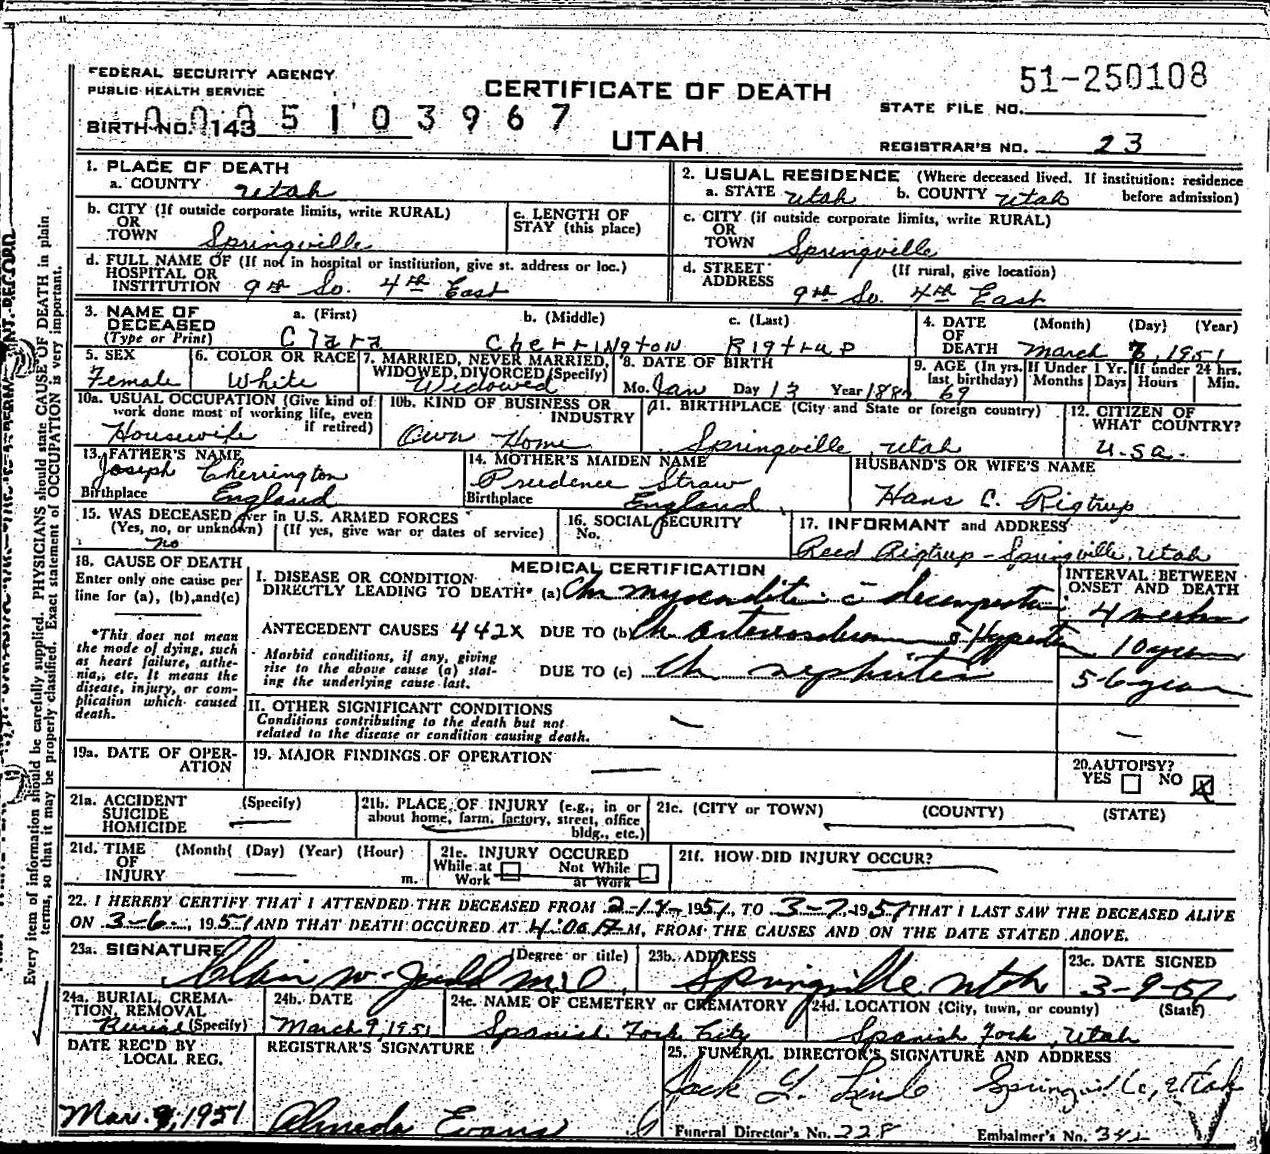 FEDERAL SECURITY AGENCY
PUBLIC HEALTH SERVICE
CERTIFICATE OF DEATH
51-250108
STATE FILE NO.
BIRTH NO. 143
0005103967
UTAH
REGISTRAR'S NO. 23
1. PLACE OF DEATH
a. COUNTY Utah
2. USUAL RESIDENCE (Where deceased lived. If institution: residence before admission)
a. STATE Utah b. COUNTY Utah
b. CITY (If outside corporate limits, write RURAL)
OR
TOWN Springville
c. LENGTH OF
STAY (this place)
c. CITY (if outside corporate limits, write RURAL)
OR
TOWN Springville
d. FULL NAME OF (If not in hospital or institution, give st. address or loc.)
HOSPITAL OR
INSTITUTION 9th So. 4th East
d. STREET (If rural, give location)
ADDRESS 9th So. 4th East
3. NAME OF DECEASED (Type or Print)
a. (First) b. (Middle) c. (Last)
Clara Cherrington Rigtrup
4. DATE OF DEATH (Month) (Day) (Year)
March 7, 1951
5. SEX
Female
6. COLOR OR RACE
White
7. MARRIED, NEVER MARRIED, WIDOWED, DIVORCED (Specify)
Widowed
8. DATE OF BIRTH
Mo. Jan Day 13 Year
9. AGE (In yrs. last birthday) 69
If Under 1 Yr. Months Days
If under 24 hrs. Hours Min.
10a. USUAL OCCUPATION (Give kind of work done most of working life, even if retired)
Housewife
10b. KIND OF BUSINESS OR INDUSTRY
Own Home
11. BIRTHPLACE (City and State or foreign country)
Springville, Utah
12. CITIZEN OF WHAT COUNTRY?
U.S.A.
13. FATHER'S NAME
Joseph Cherrington
Birthplace England
14. MOTHER'S MAIDEN NAME
Prudence Straw
Birthplace England
HUSBAND'S OR WIFE'S NAME
Hans C. Rigtrup
15. WAS DECEASED ever in U.S. ARMED FORCES
(Yes, no, or unknown) (If yes, give war or dates of service)
no
16. SOCIAL SECURITY
No.
17. INFORMANT and ADDRESS
Reed Rigtrup - Springville, Utah
18. CAUSE OF DEATH
Enter only one cause per line for (a), (b), and (c)
*This does not mean the mode of dying, such as heart failure, asthenia, etc. It means the disease, injury, or complication which caused death.
MEDICAL CERTIFICATION
INTERVAL BETWEEN ONSET AND DEATH
I. DISEASE OR CONDITION
DIRECTLY LEADING TO DEATH* (a) Chr myocarditis c decompensation 4 weeks
ANTECEDENT CAUSES 442X DUE TO (b) Ch arteriosclerosis c Hypertension 10 years
Morbid conditions, if any, giving rise to the above cause (a) stating the underlying cause last.
DUE TO (c) Ch nephritis 5-6 years
II. OTHER SIGNIFICANT CONDITIONS
Conditions contributing to the death but not related to the disease or condition causing death.
19a. DATE OF OPERATION
19. MAJOR FINDINGS OF OPERATION
20. AUTOPSY?
YES NO X
21a. ACCIDENT (Specify)
SUICIDE
HOMICIDE
21b. PLACE OF INJURY (e.g., in or about home, farm, factory, street, office bldg., etc.)
21c. (CITY or TOWN) (COUNTY) (STATE)
21d. TIME OF INJURY (Month) (Day) (Year) (Hour) m.
21e. INJURY OCCURED
While at Work Not While at Work
21f. HOW DID INJURY OCCUR?
22. I HEREBY CERTIFY THAT I ATTENDED THE DECEASED FROM 2-14-1951, TO 3-7-1951 THAT I LAST SAW THE DECEASED ALIVE
ON 3-6-, 1951 AND THAT DEATH OCCURED AT 4:00 M, FROM THE CAUSES AND ON THE DATE STATED ABOVE.
23a. SIGNATURE (Degree or title)
M.D.
23b. ADDRESS
Springville Utah
23c. DATE SIGNED
3-9-51
24a. BURIAL, CREMATION, REMOVAL (Specify)
Burial
24b. DATE
March 9, 1951
24c. NAME OF CEMETERY or CREMATORY
Spanish Fork City
24d. LOCATION (City, town, or county) (State)
Spanish Fork, Utah
DATE REC'D BY LOCAL REG.
Mar. 9, 1951
REGISTRAR'S SIGNATURE
Almeda Evans
25. FUNERAL DIRECTOR'S SIGNATURE AND ADDRESS
Jack Springville, Utah
Funeral Director's No. 228 Embalmer's No. 342
Every item of information should be carefully supplied. PHYSICIANS should state CAUSE OF DEATH in plain
terms, so that it may be properly classified. Exact statement of OCCUPATION is very important.